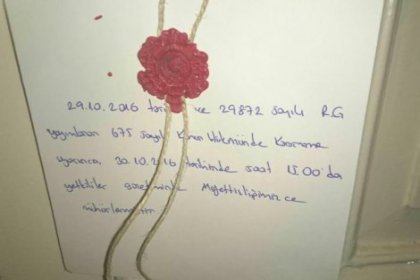 29.10.2016 tarih ve 29872 sayılı RG
yayımlanan 675 sayılı Kanun Hükmünde Kararname
uyarınca 30.10.2016 tarihinde saat 15.00'da
yetkililer Müfettişliğimizce
mühürlenmiştir